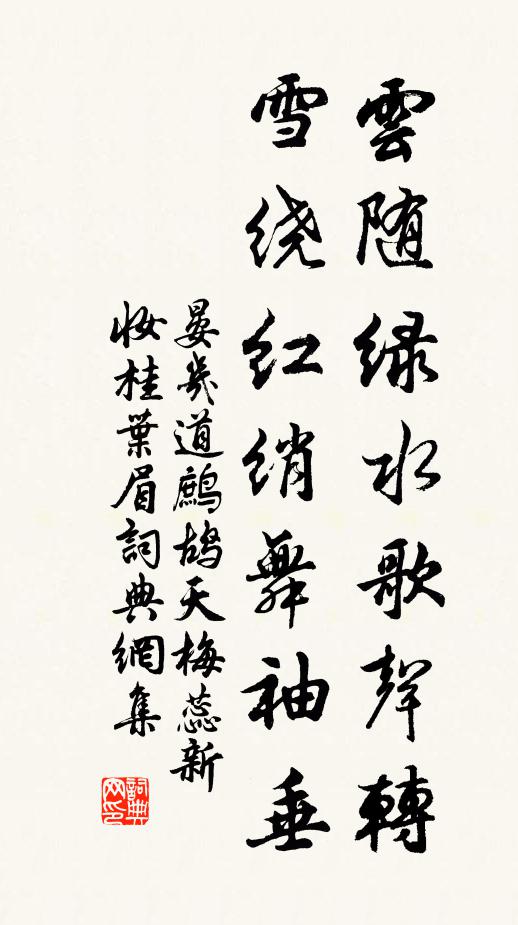 雲随绿水歌聲轉
雪绕红绡舞袖垂
晏幾道鷓鴣天梅蕊新
妝桂葉眉詞典網集
詞典网印